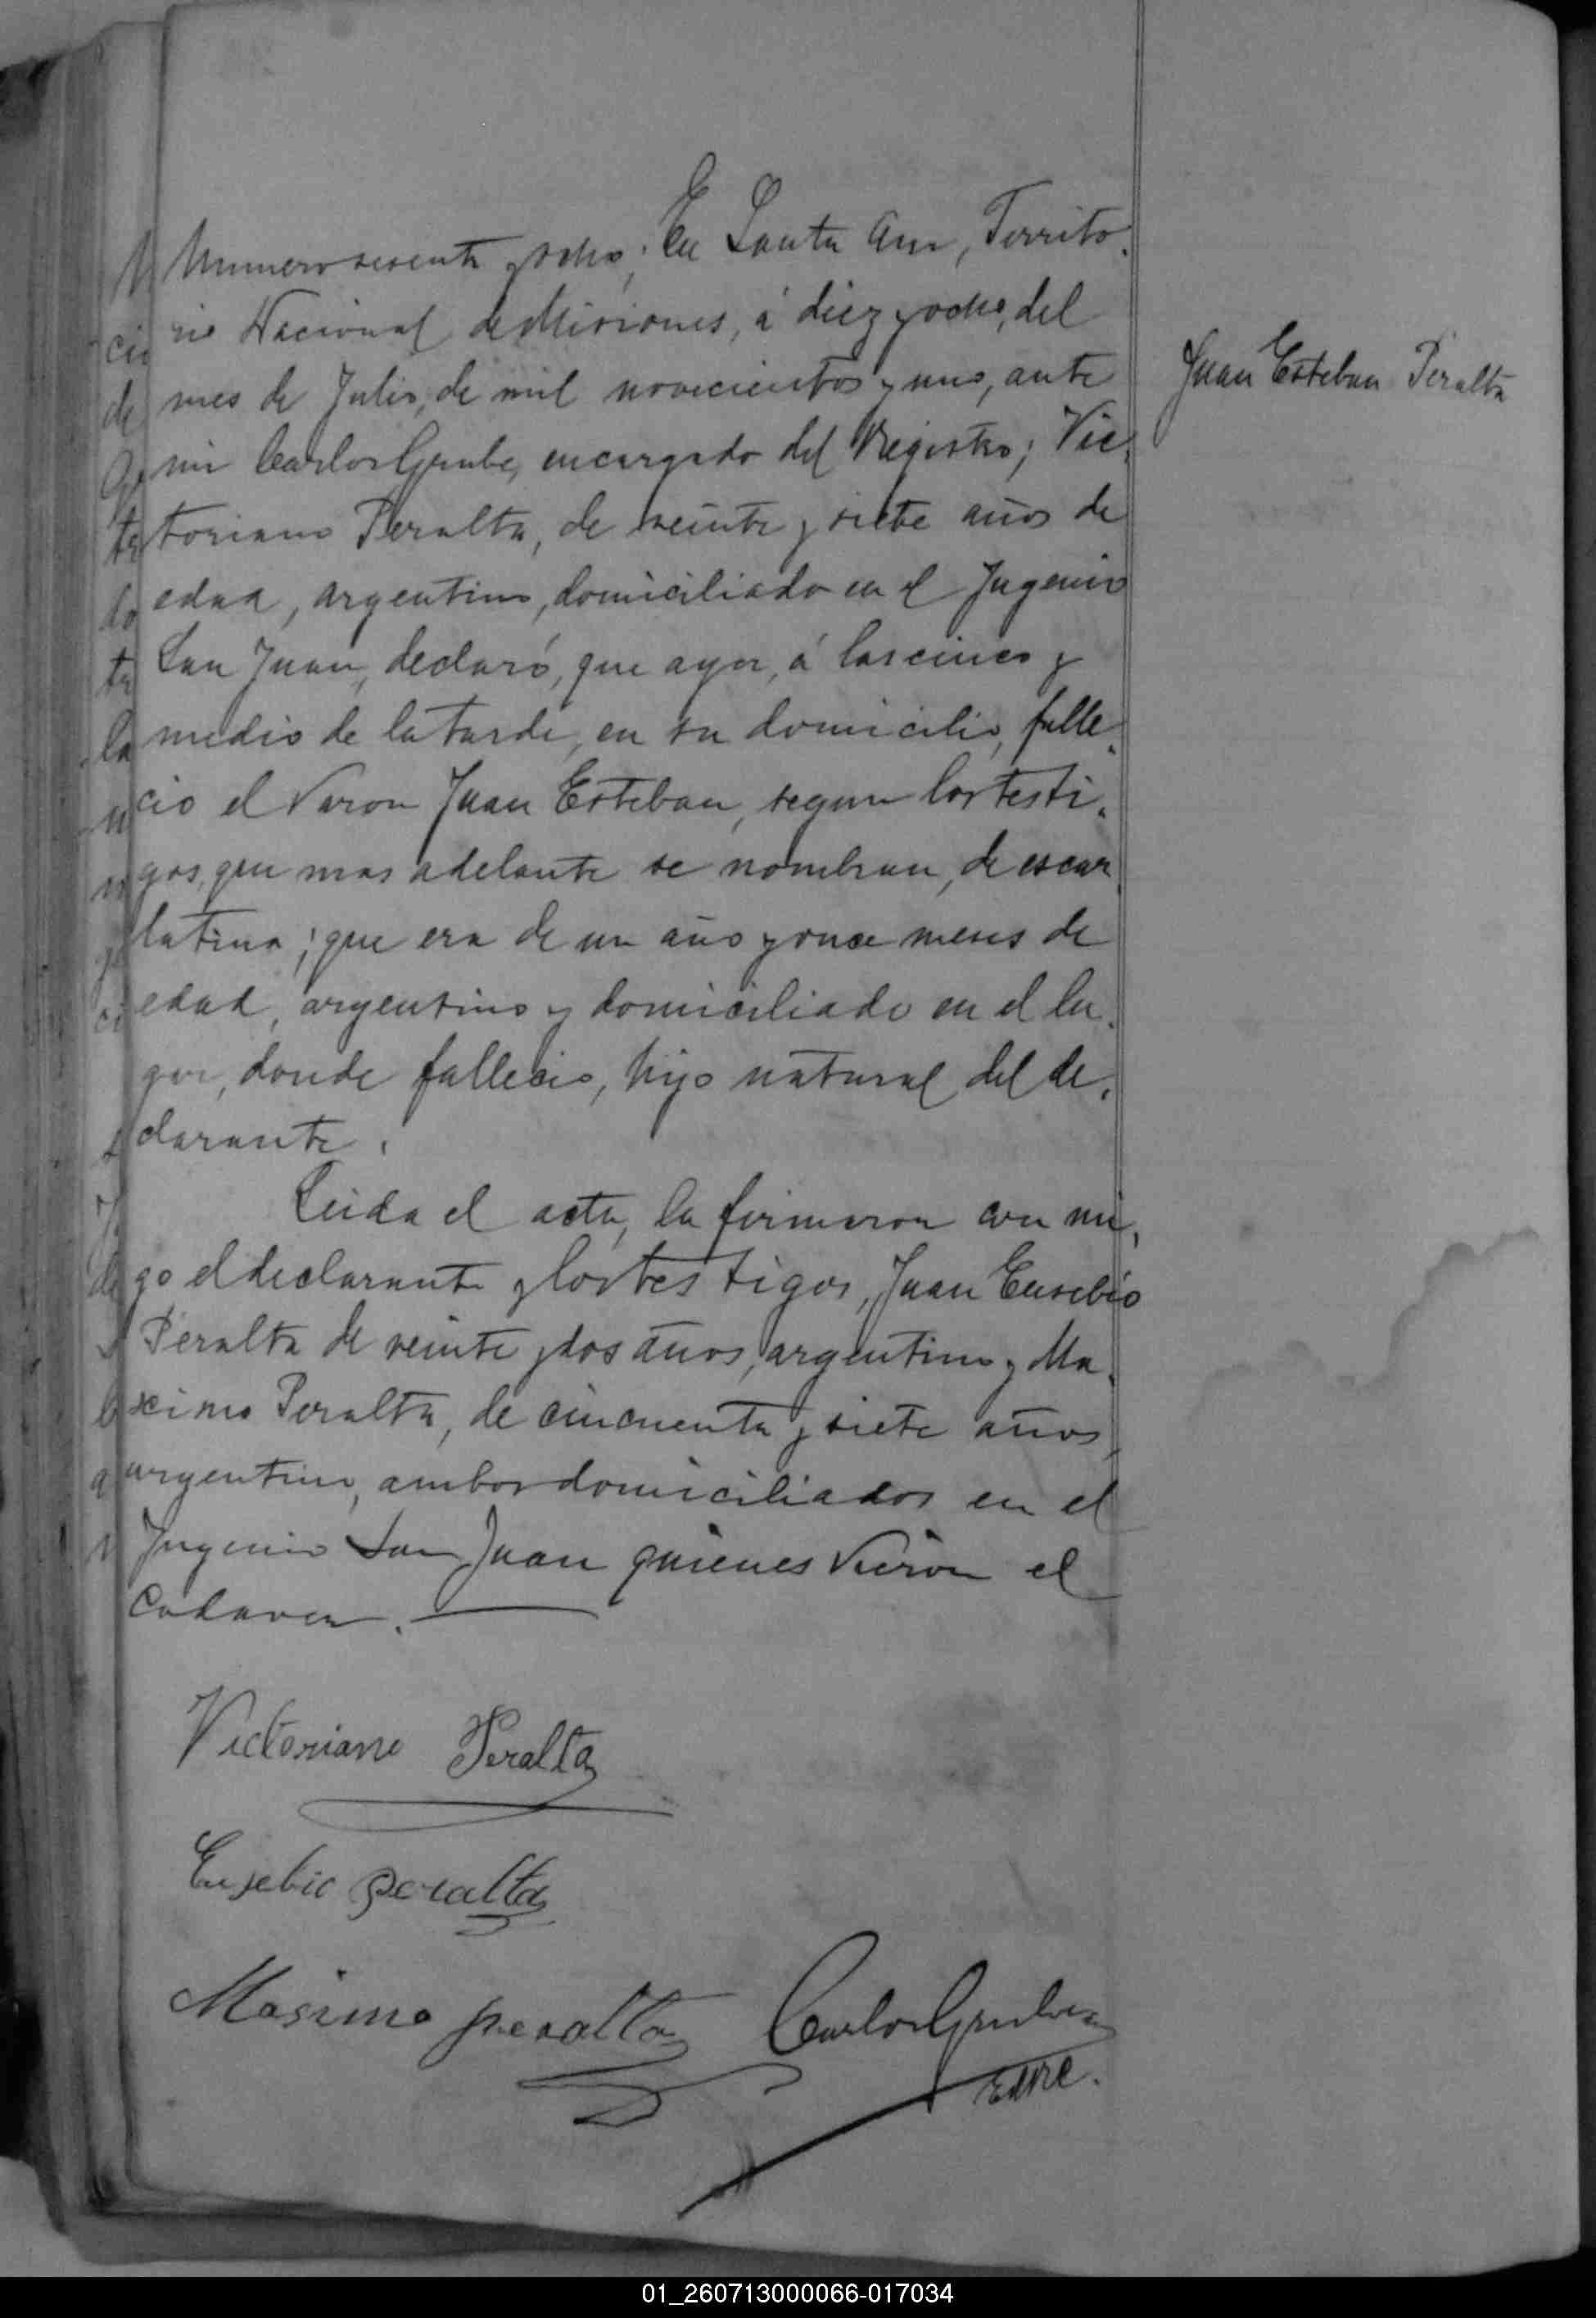 Numero sesenta y ocho; En Santa Ana, Territo-
rio Nacional de Misiones, á diez y ocho, del
mes de Julio, de mil novecientos y uno, ante
mi Carlos Grube, encargado del Registro; Vic-
toriano Peralta, de veinte y siete años de
edad, argentino, domiciliado en el Ingenio
San Juan, declaró, que ayer, á las cinco y
media de la tarde, en su domicilio, falle-
cio el Varon Juan Esteban, segun los testi-
gos, que mas adelante se nombran, de escar-
latina; que era de un año y once meses de
edad, argentino y domiciliado en el lu-
gar, donde fallecio, hijo natural del de-
clarante.
Leida el acta, la firmaron con mi-
go el declarante y los testigos, Juan Eusebio
Peralta de veinte y dos años, argentino y Ma-
ximo Peralta, de cincuenta y siete años,
argentino, ambos domiciliados en el
Ingenio San Juan quienes vieron el
cadaver.
Juan Esteban Peralta
Victoriano Peralta
Eusebio peralta
Masimo peralta
Carlos Grube
01_260713000066-017034